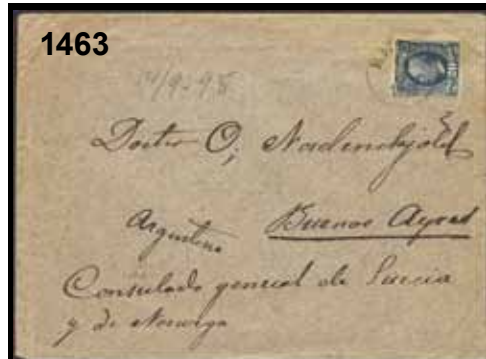 1463
14/9-95
Doctor O, Nordenskjöld
Argentina
Buenos Ayres
Consulado general de Suecia
y de Noruega